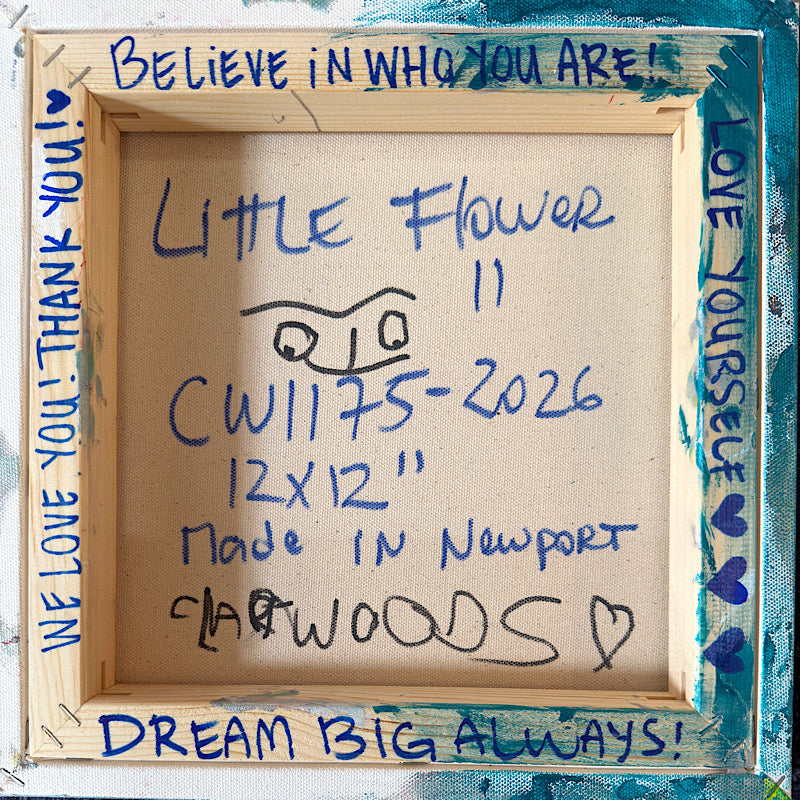 BELiEVE iN WHO YOU ARE!
LOVE YOURSELF
DREAM BIG ALWAYS!
WE LOVE YOU! THANK YOU!
LiTTLE FlOWER
"
CW1175-2026
12X12"
Made IN NewPORT